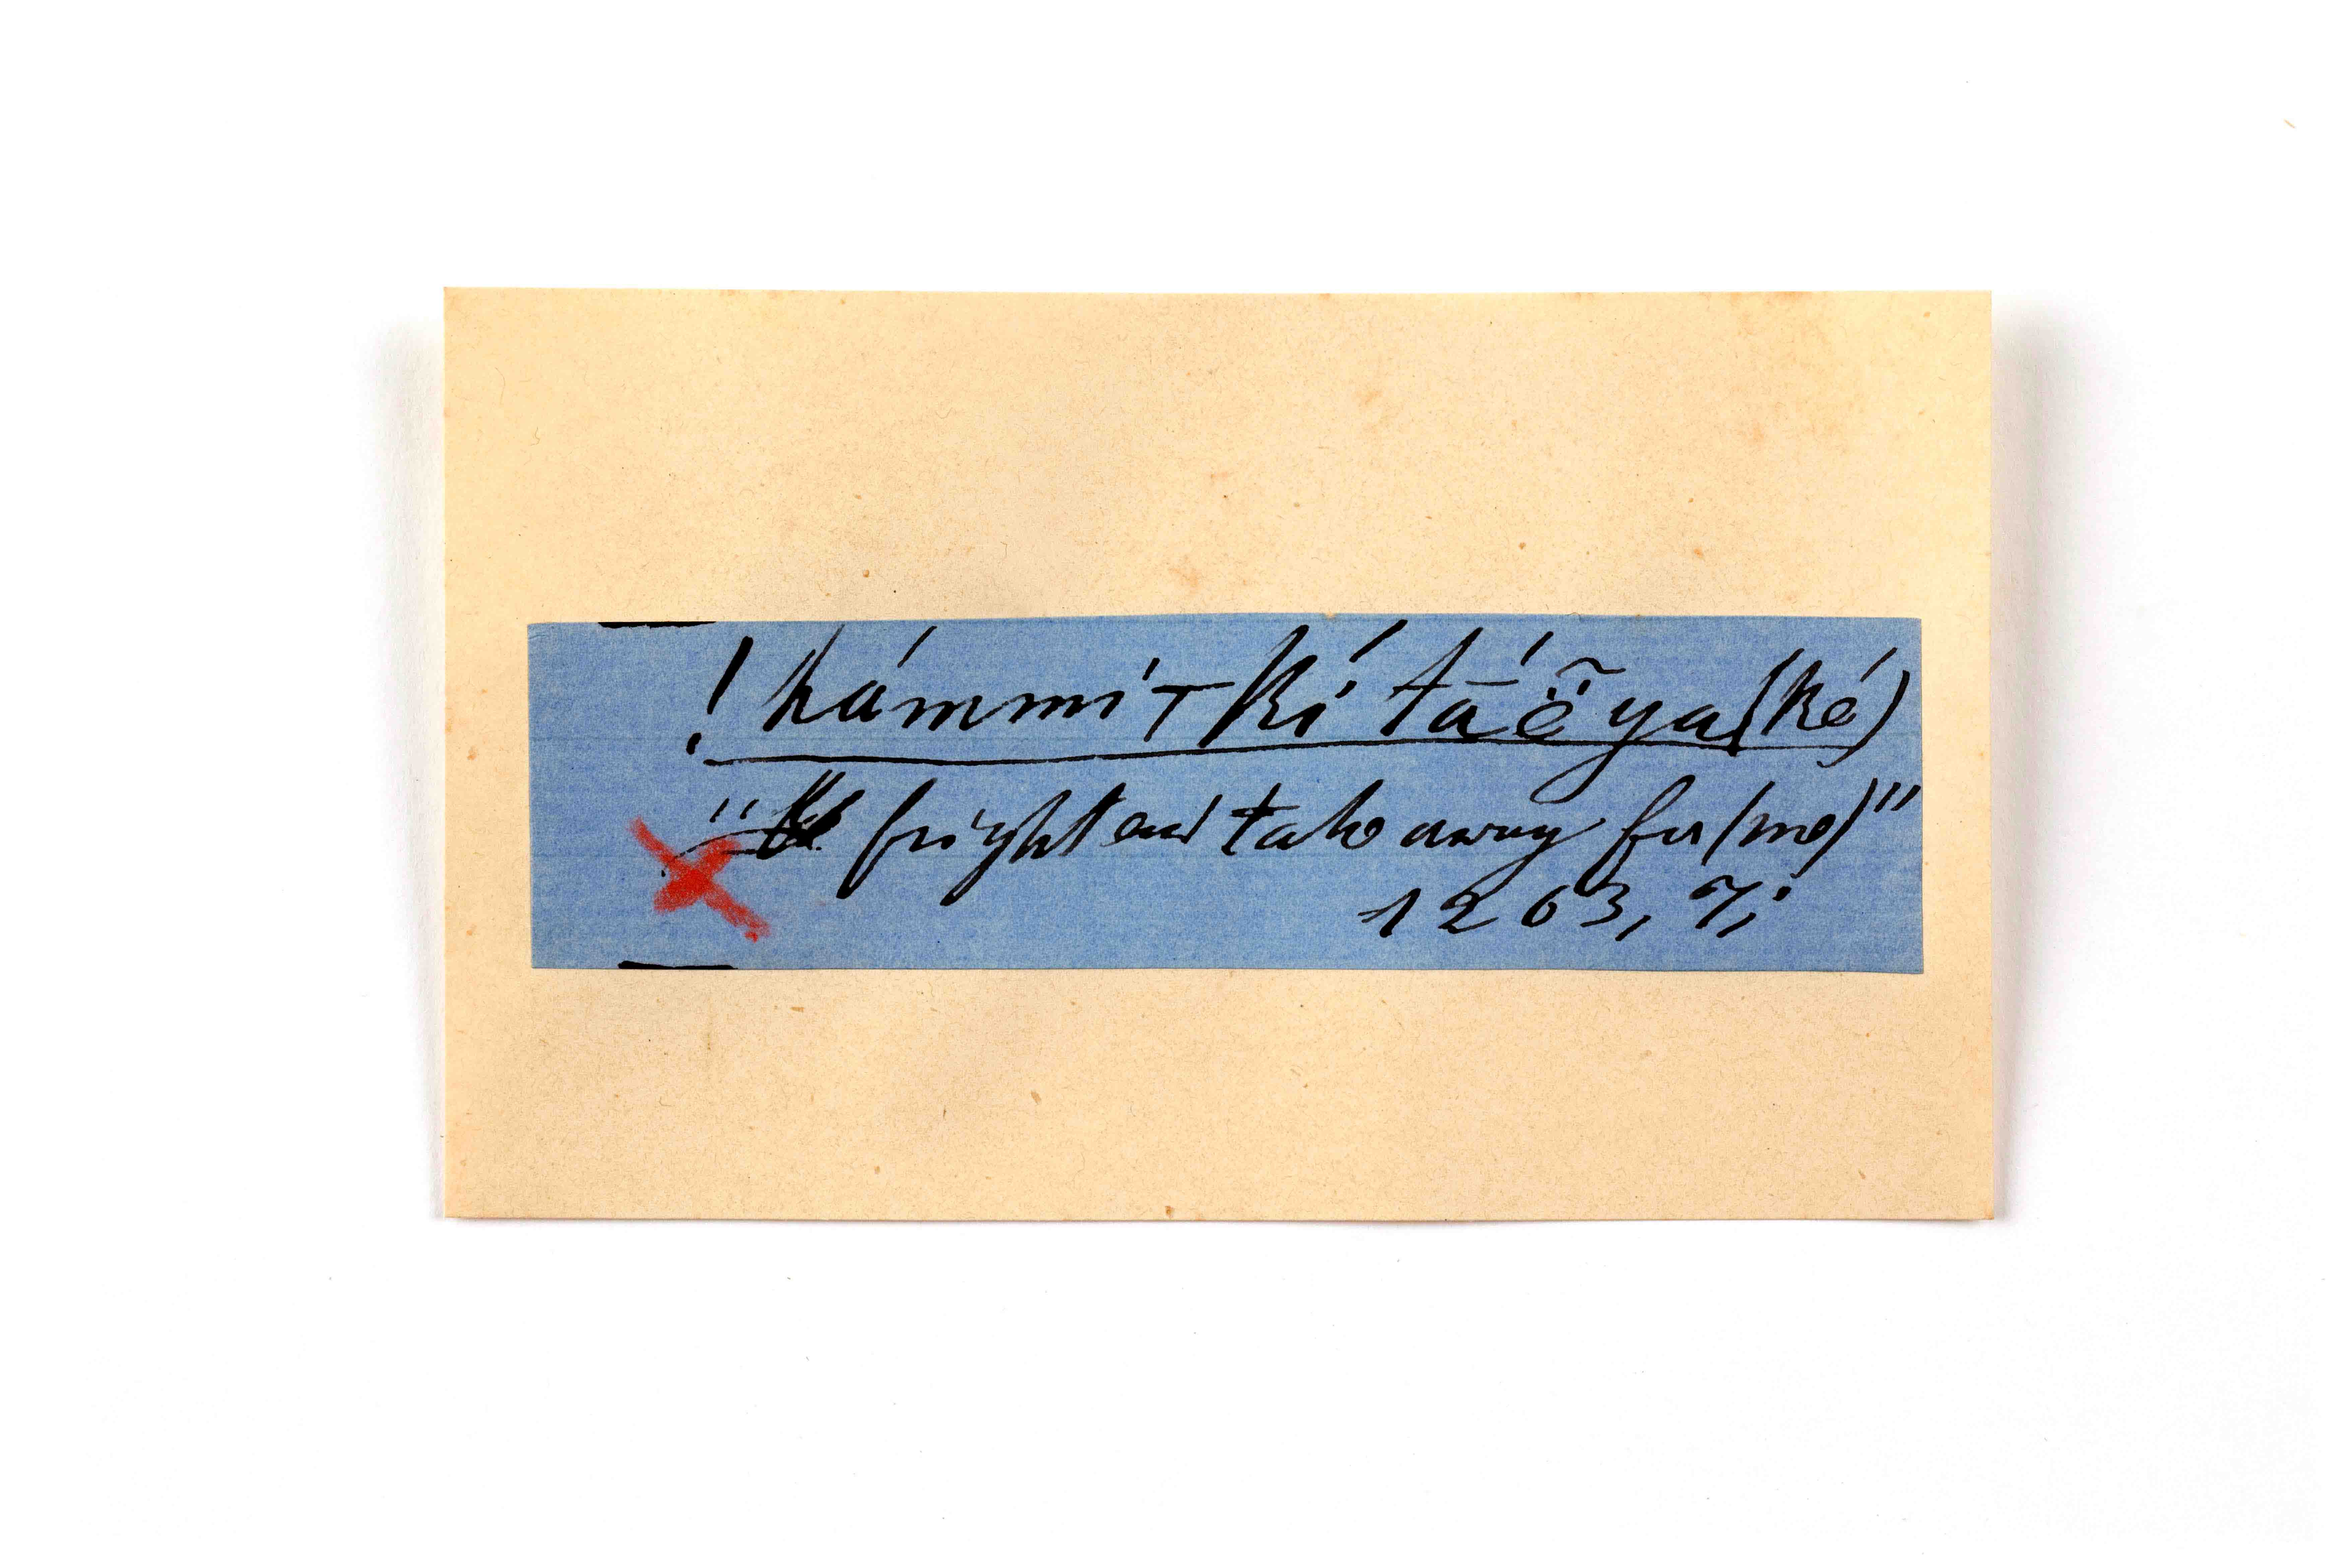 ! hámmi⊤kí tā́ë̃ya(ké)
" fright and take away for (me)"
1263, 7;